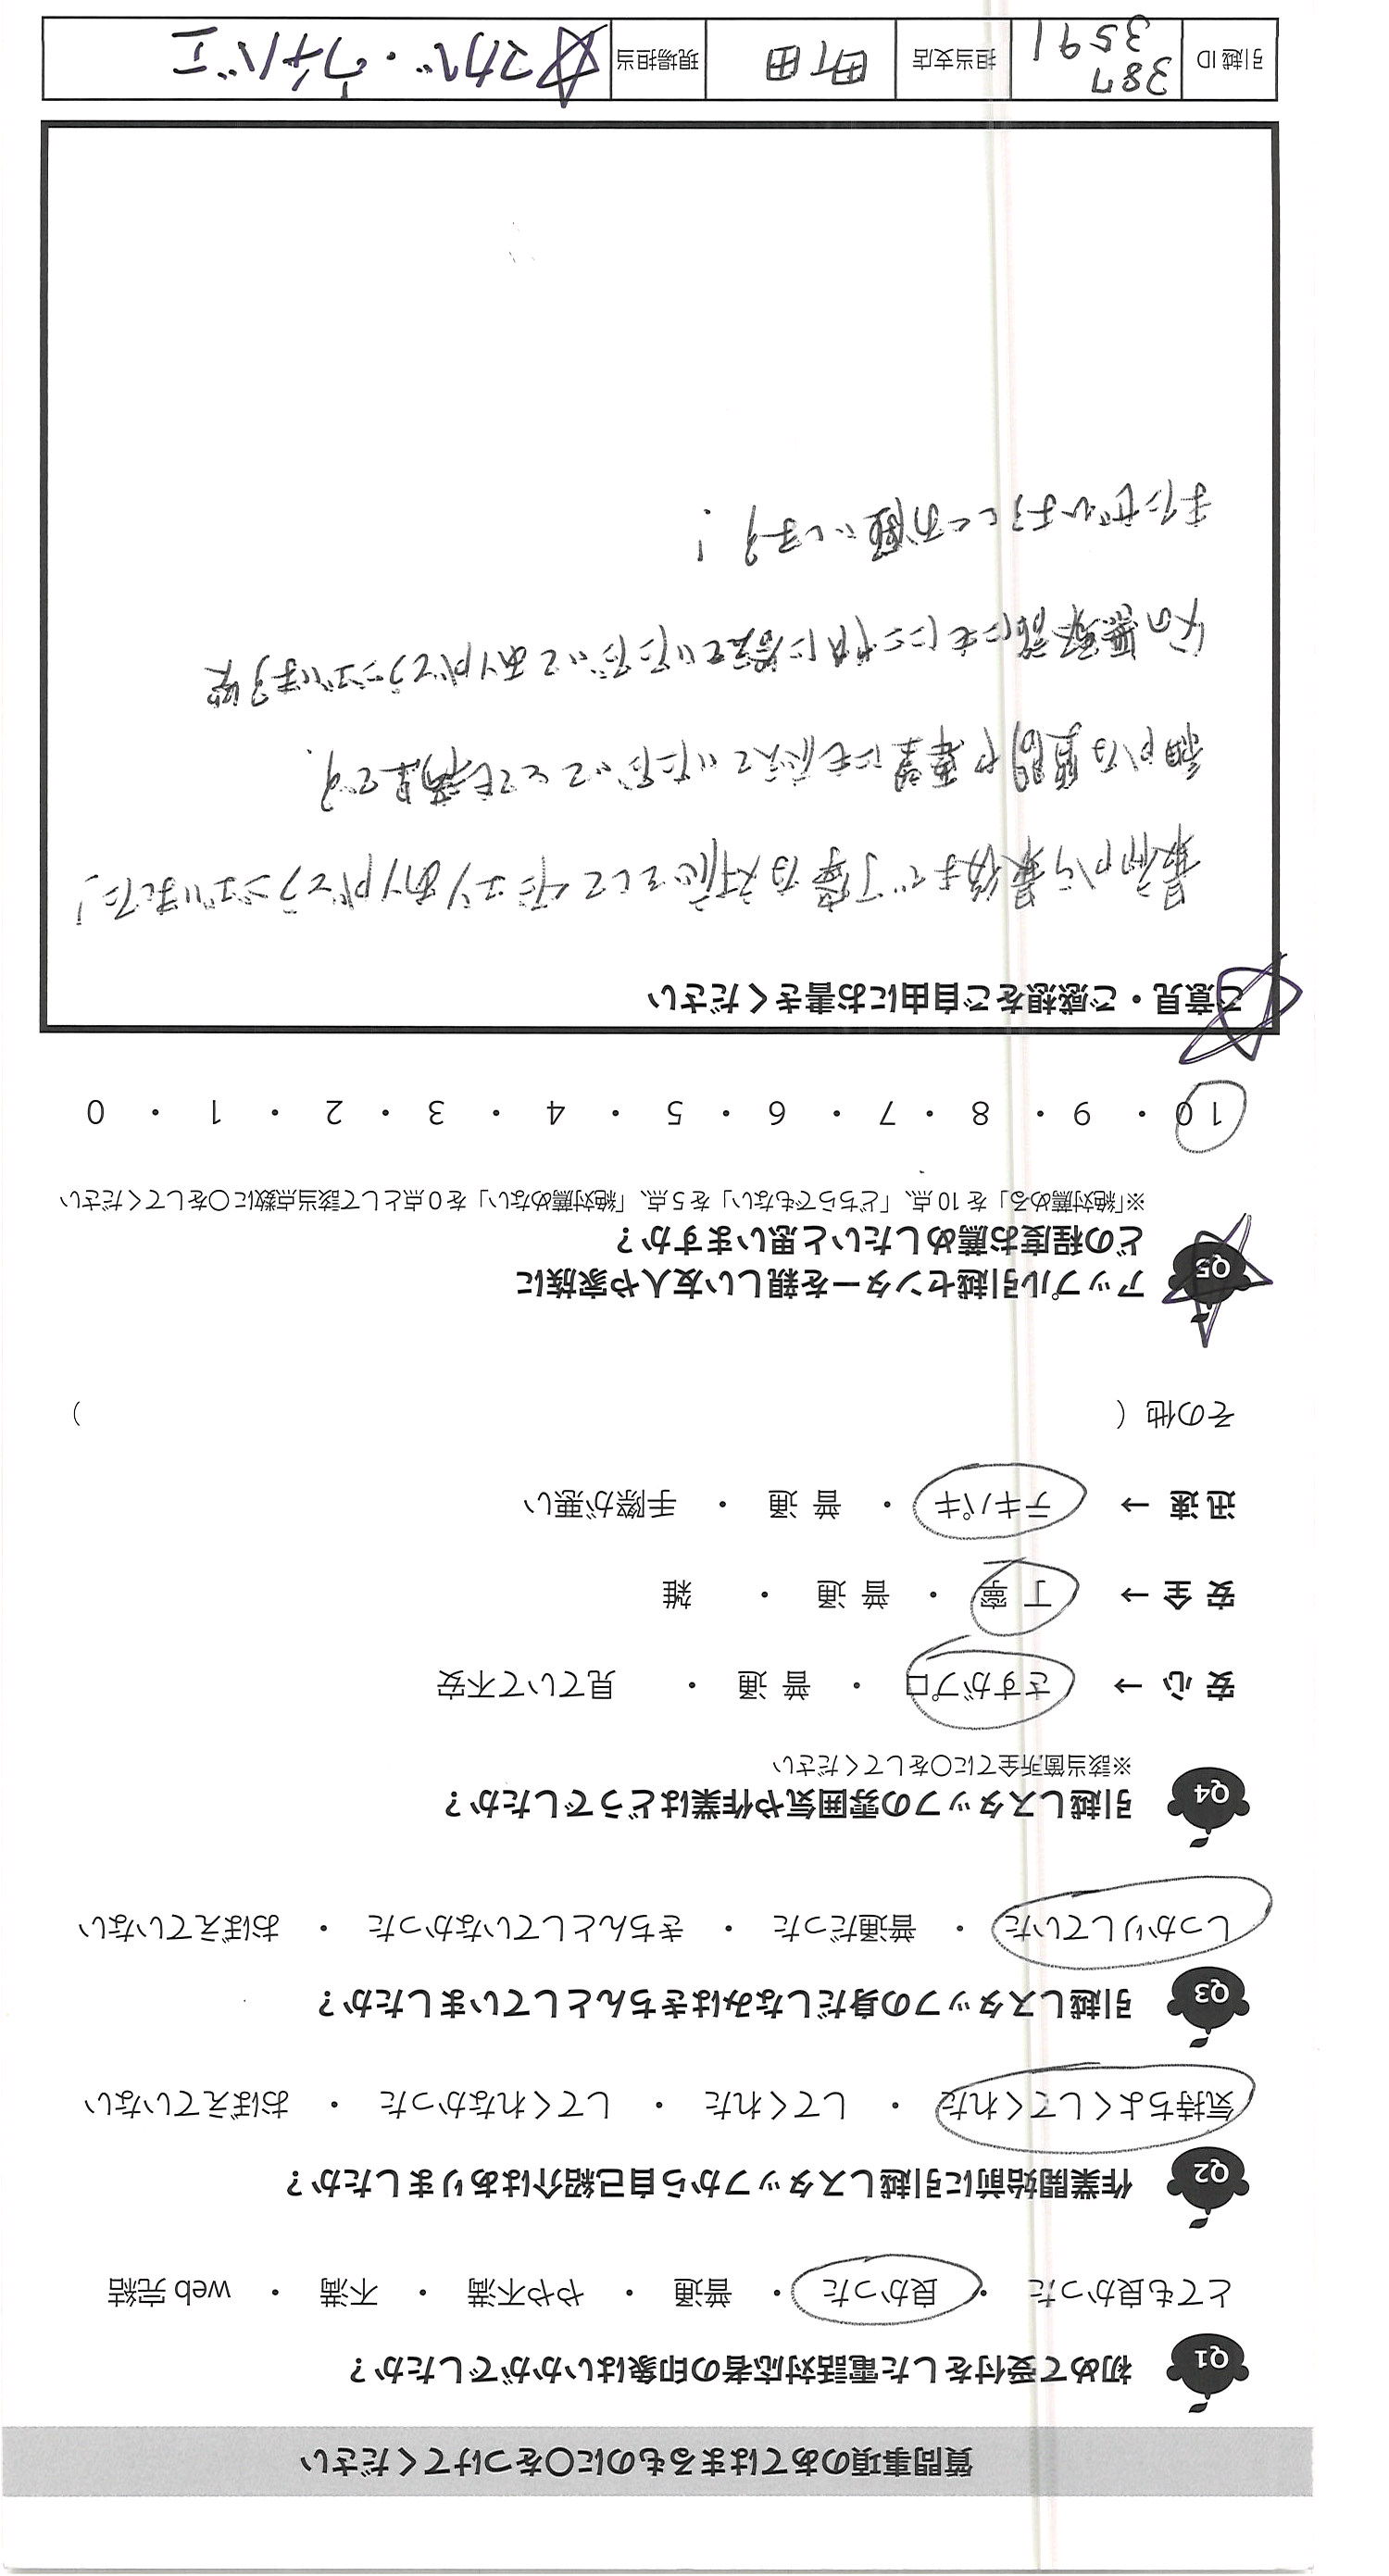 質問事項のあてはまるものに〇をつけてください
Q1 初めて受付をした電話対応者の印象はいかがでしたか？
とても良かった ・ 良かった ・ 普通 ・ やや不満 ・ 不満 ・ web 完結
Q2 作業開始前に引越しスタッフから自己紹介はありましたか？
気持ちよくしてくれた ・ してくれた ・ してくれなかった ・ おぼえていない
Q3 引越しスタッフの身だしなみはきちんとしていましたか？
しっかりしていた ・ 普通だった ・ きちんとしていなかった ・ おぼえていない
Q4 引越しスタッフの雰囲気や作業はどうでしたか？
※該当箇所全てに〇をしてください
安 心 → さすがプロ ・ 普 通 ・ 見ていて不安
安 全 → 丁 寧 ・ 普 通 ・ 雑
迅 速 → テキパキ ・ 普 通 ・ 手際が悪い
その他（ ）
Q5 アップル引越センターを親しい友人や家族に
どの程度お薦めしたいと思いますか？
※「絶対薦める」を 10 点、「どちらでもない」を 5 点、「絶対薦めない」を 0 点として該当点数に〇をしてください
10 ・ 9 ・ 8 ・ 7 ・ 6 ・ 5 ・ 4 ・ 3 ・ 2 ・ 1 ・ 0
ご意見・ご感想をご自由にお書きください
最初から最後まで丁寧な対応をして下さりありがとうございました！
細かな質問や要望にも応えていただいてとても満足です。
にもにこやかに答えていただいてありがとうございます
またぜひよろしくお願いします！
引越 ID 387
3591 担当支店 町田 現場担当 マカベ・ワイバエ